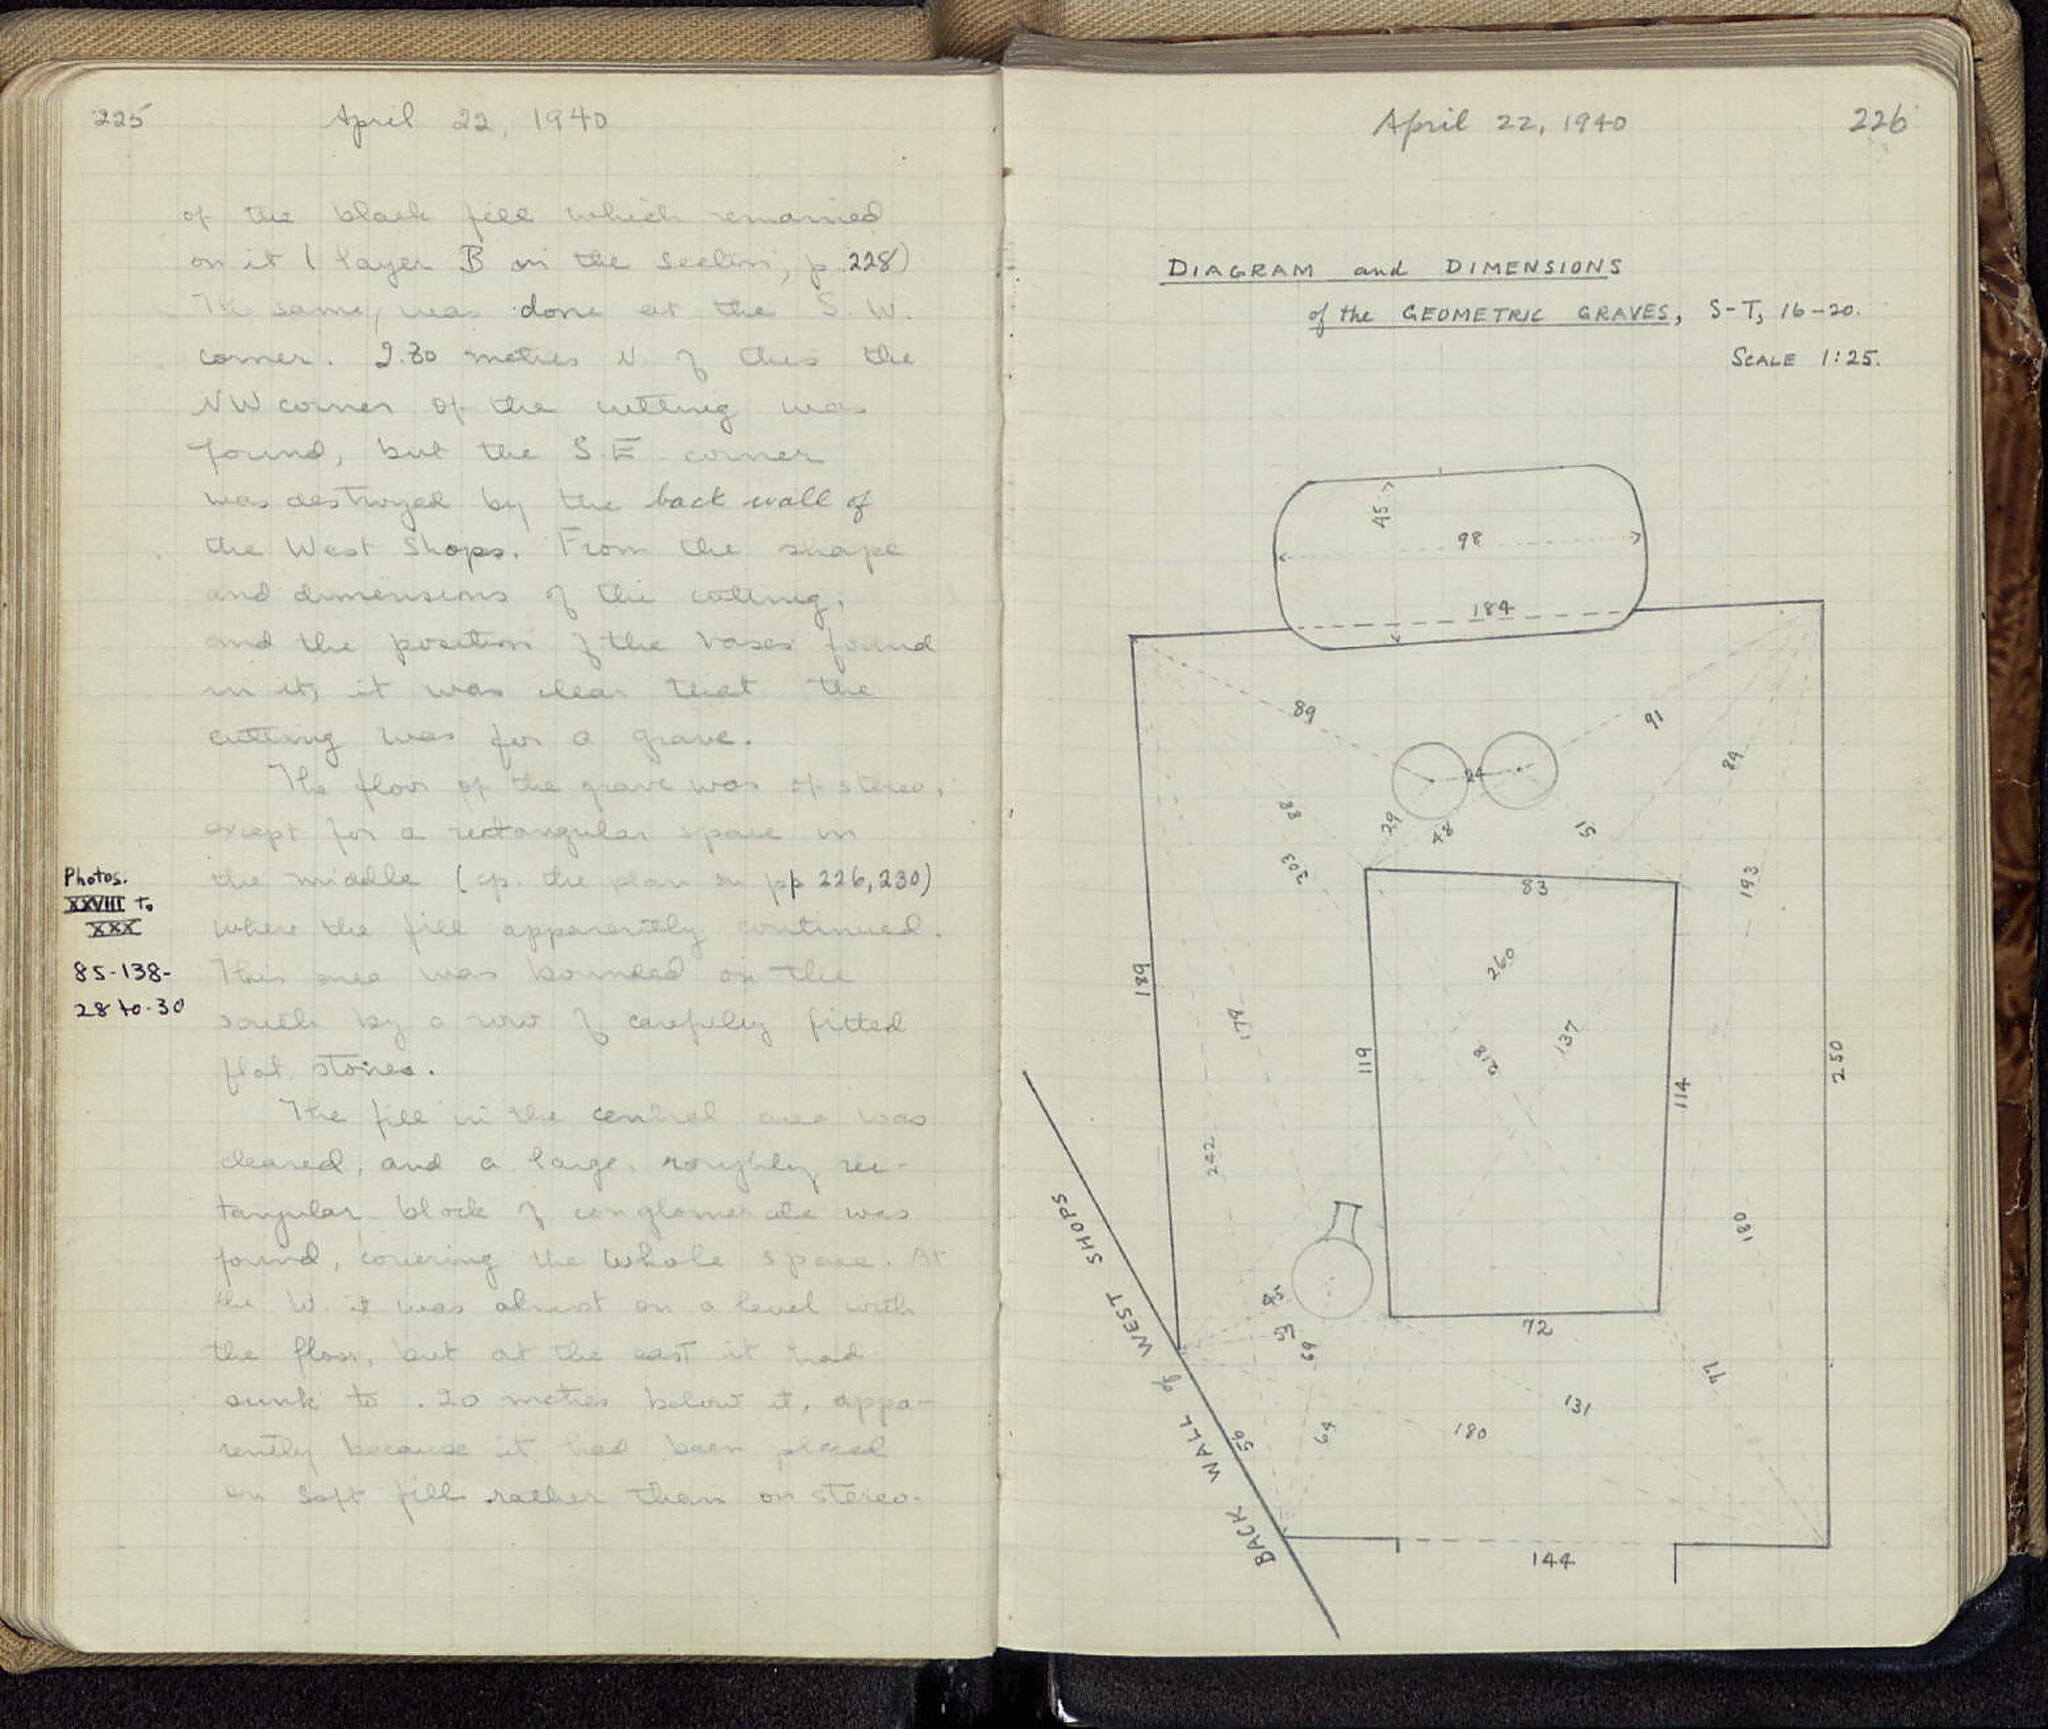 225
April 22, 1940
of the black fill which remained
on it (layer B on the section, p. 228)
The same, was done at the S. W.
corner. 2.30 metres N. of this the
NW corner of the cutting was
found, but the S.E. corner
was destroyed by the back wall of
the West Shops. From the shape
and dimensions of the cutting,
and the position of the vases found
in it, it was clear that the
cutting was for a grave.
The floor of the grave was of stereo,
except for a rectangular space in
the middle (cp. the plan on pp 226, 230)
where the fill apparently continued.
This area was bounded on the
south by a row of carefully fitted
flat stones.
Photos.
XXVIII to
XXX
85-138-
28 to 30
The fill in the central area was
cleared, and a large, roughly rec-
tangular block of conglomerate was
found, covering the whole space. At
the W. it was almost on a level with
the floor, but at the east it had
sunk to .20 metres below it, appa-
rently because it had been placed
on soft fill rather than on stereo.
April 22, 1940
226
DIAGRAM and DIMENSIONS
of the GEOMETRIC GRAVES, S-T, 16-20.
SCALE 1:25.
45
98
184
89
91
24
84
88
29
48
51
303
83
193
189
260
179
119
218
137
114
250
242
180
45
59
69
72
77
131
180
64
56
144
BACK WALL of WEST SHOPS